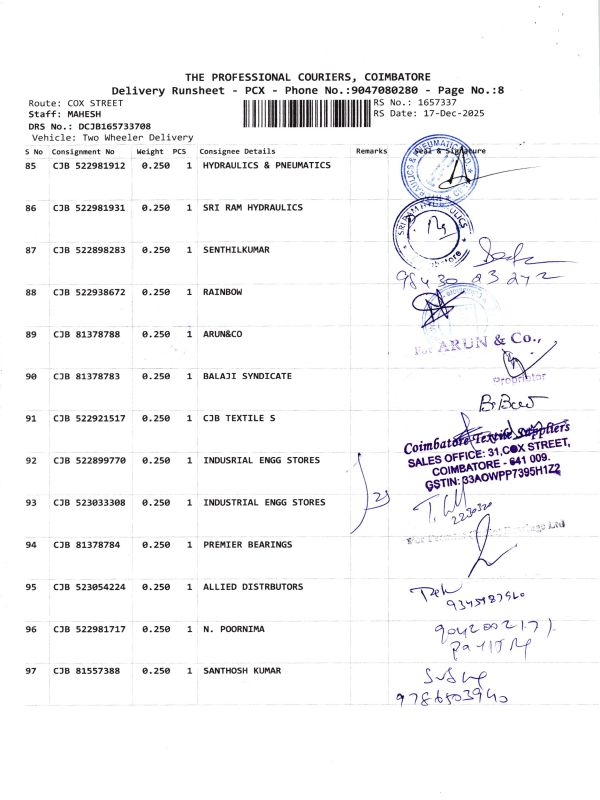 THE PROFESSIONAL COURIERS, COIMBATORE
Delivery Runsheet - PCX - Phone No.:9047080280 - Page No.:8
Route: COX STREET RS No.: 1657337
Staff: MAHESH RS Date: 17-Dec-2025
DRS No.: DCJB165733708
Vehicle: Two Wheeler Delivery
S No Consignment No Weight PCS Consignee Details Remarks Seal & Signature
85 CJB 522981912 0.250 1 HYDRAULICS & PNEUMATICS
86 CJB 522981931 0.250 1 SRI RAM HYDRAULICS
87 CJB 522898283 0.250 1 SENTHILKUMAR
98430 23272
88 CJB 522938672 0.250 1 RAINBOW
89 CJB 81378788 0.250 1 ARUN&CO
For ARUN & Co.,
90 CJB 81378783 0.250 1 BALAJI SYNDICATE
Proprietor
91 CJB 522921517 0.250 1 CJB TEXTILE S
Coimbatore Textile Suppliers
SALES OFFICE: 31,COX STREET,
COIMBATORE - 641 009.
GSTIN: 33AOWPP7395H1Z2
92 CJB 522899770 0.250 1 INDUSRIAL ENGG STORES
93 CJB 523033308 0.250 1 INDUSTRIAL ENGG STORES
2230320
94 CJB 81378784 0.250 1 PREMIER BEARINGS
95 CJB 523054224 0.250 1 ALLIED DISTRBUTORS
96 CJB 522981717 0.250 1 N. POORNIMA
97 CJB 81557388 0.250 1 SANTHOSH KUMAR
9786503940